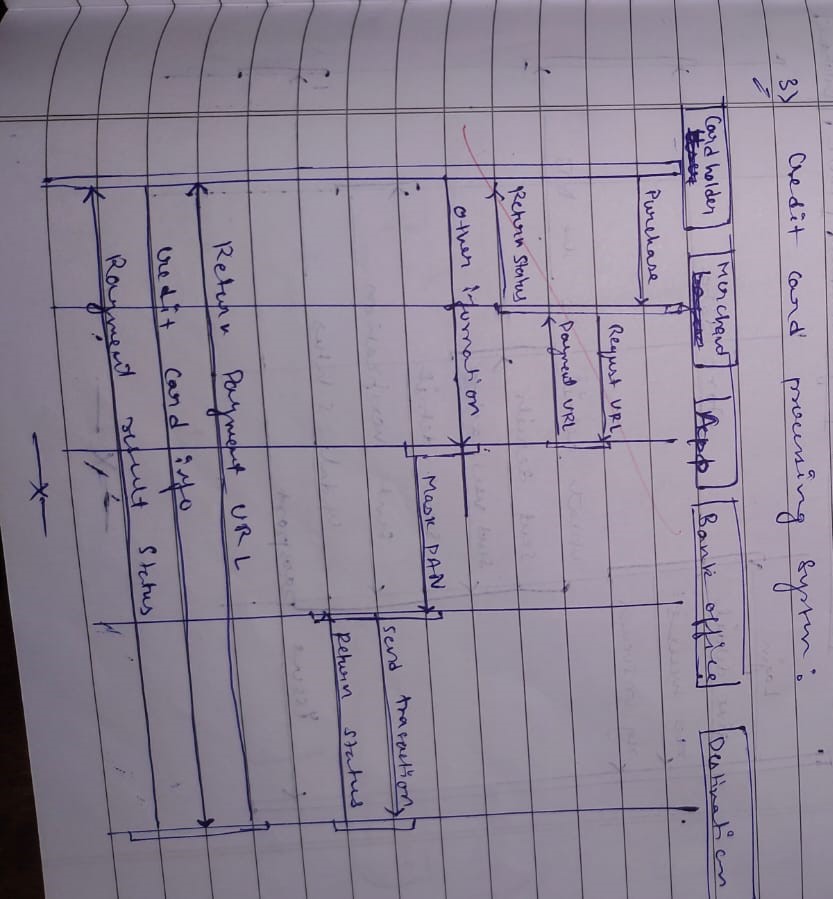 3) Credit card processing System:
Cardholder
Merchant
App
Bank office
Destination
Purchase
Request URL
Payment URL
Return Status
Other information
Mask PAN
Send trasaction
Return Status
Return Payment URL
Credit Card info
Payment result Status